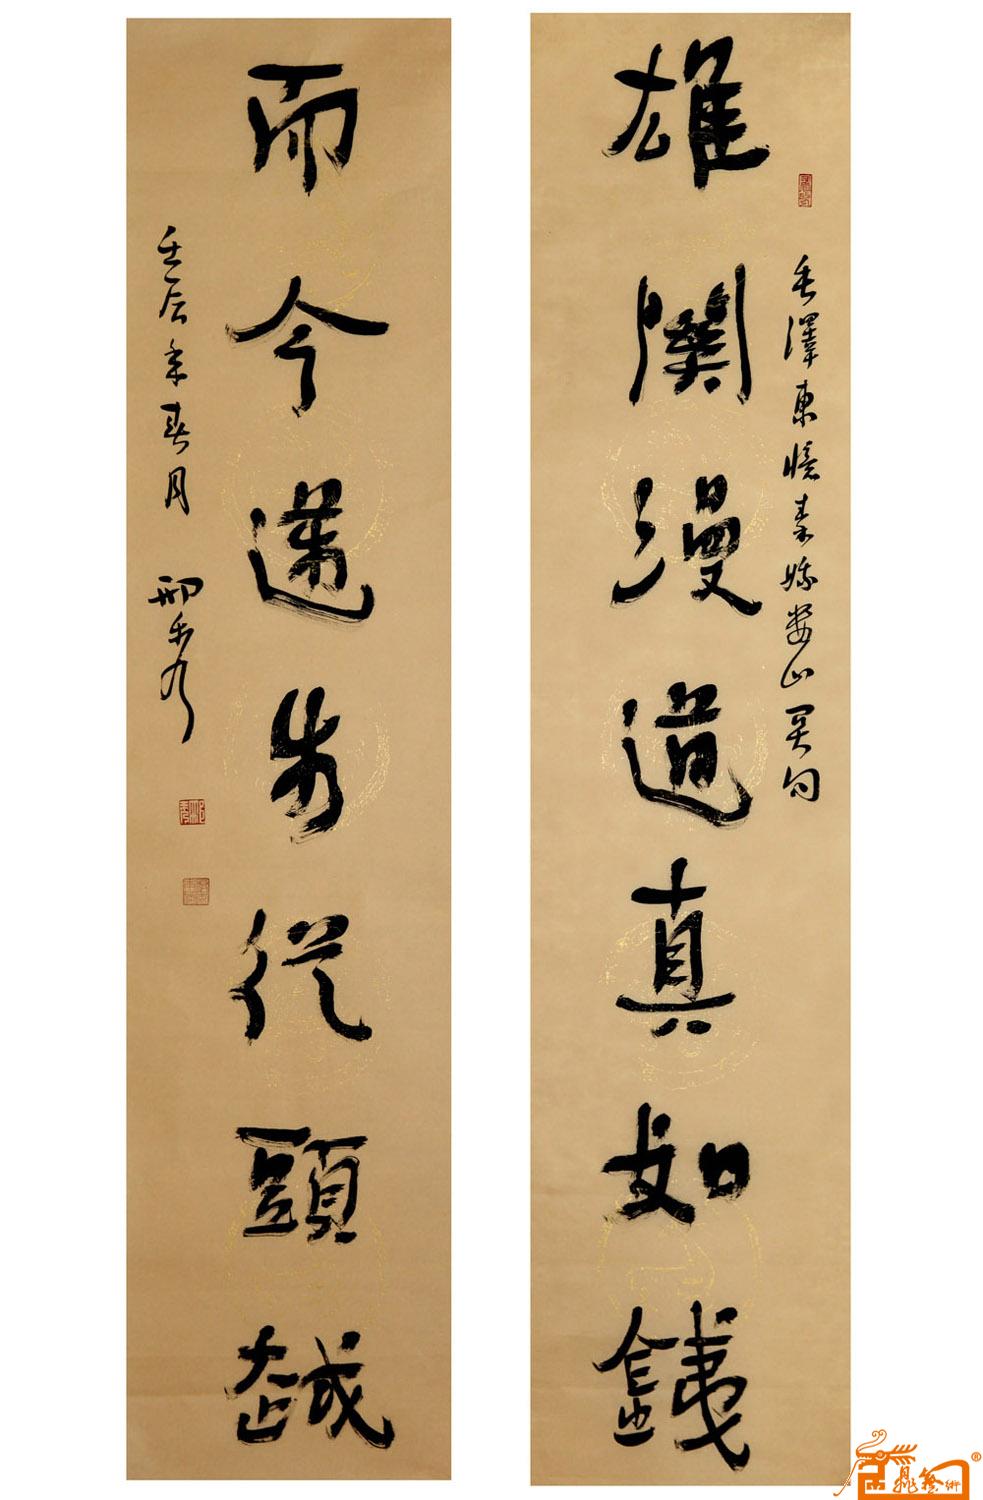 雄關漫道真如鐵
毛澤東憶秦娥婁山關句
而今邁步從頭越
壬辰年春月